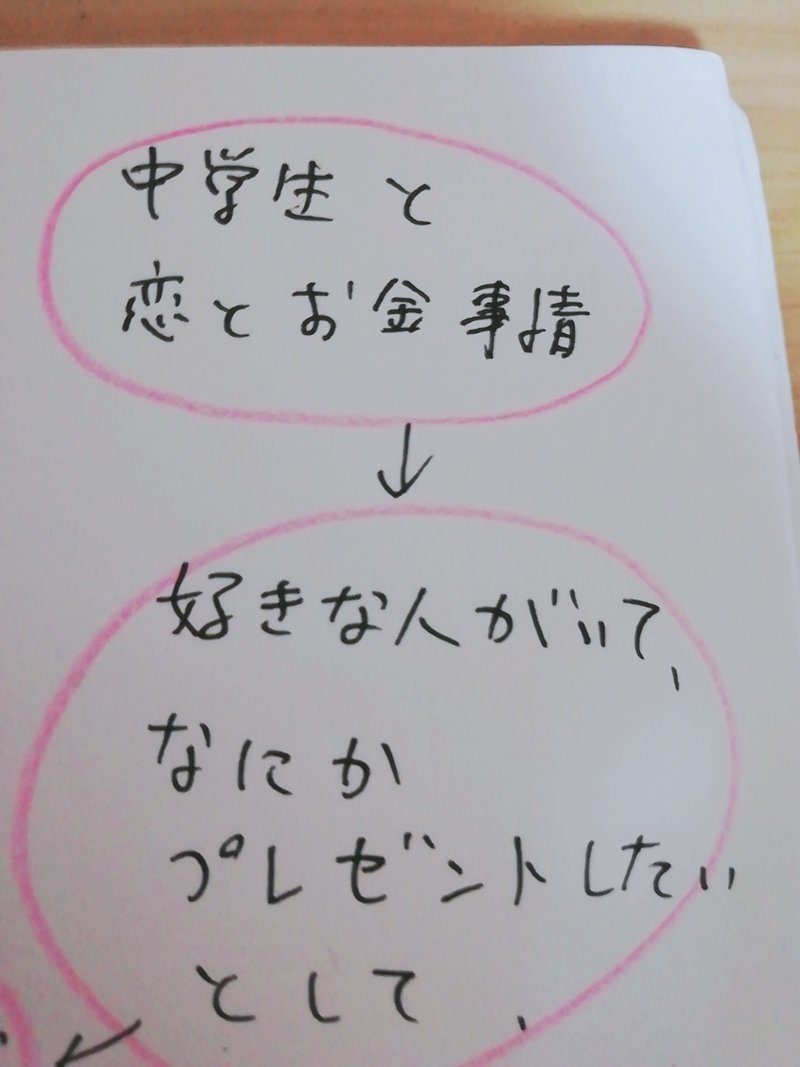 中学生と
恋とお金事情
↓
好きな人がいて、
なにか
プレゼントしたい
として、